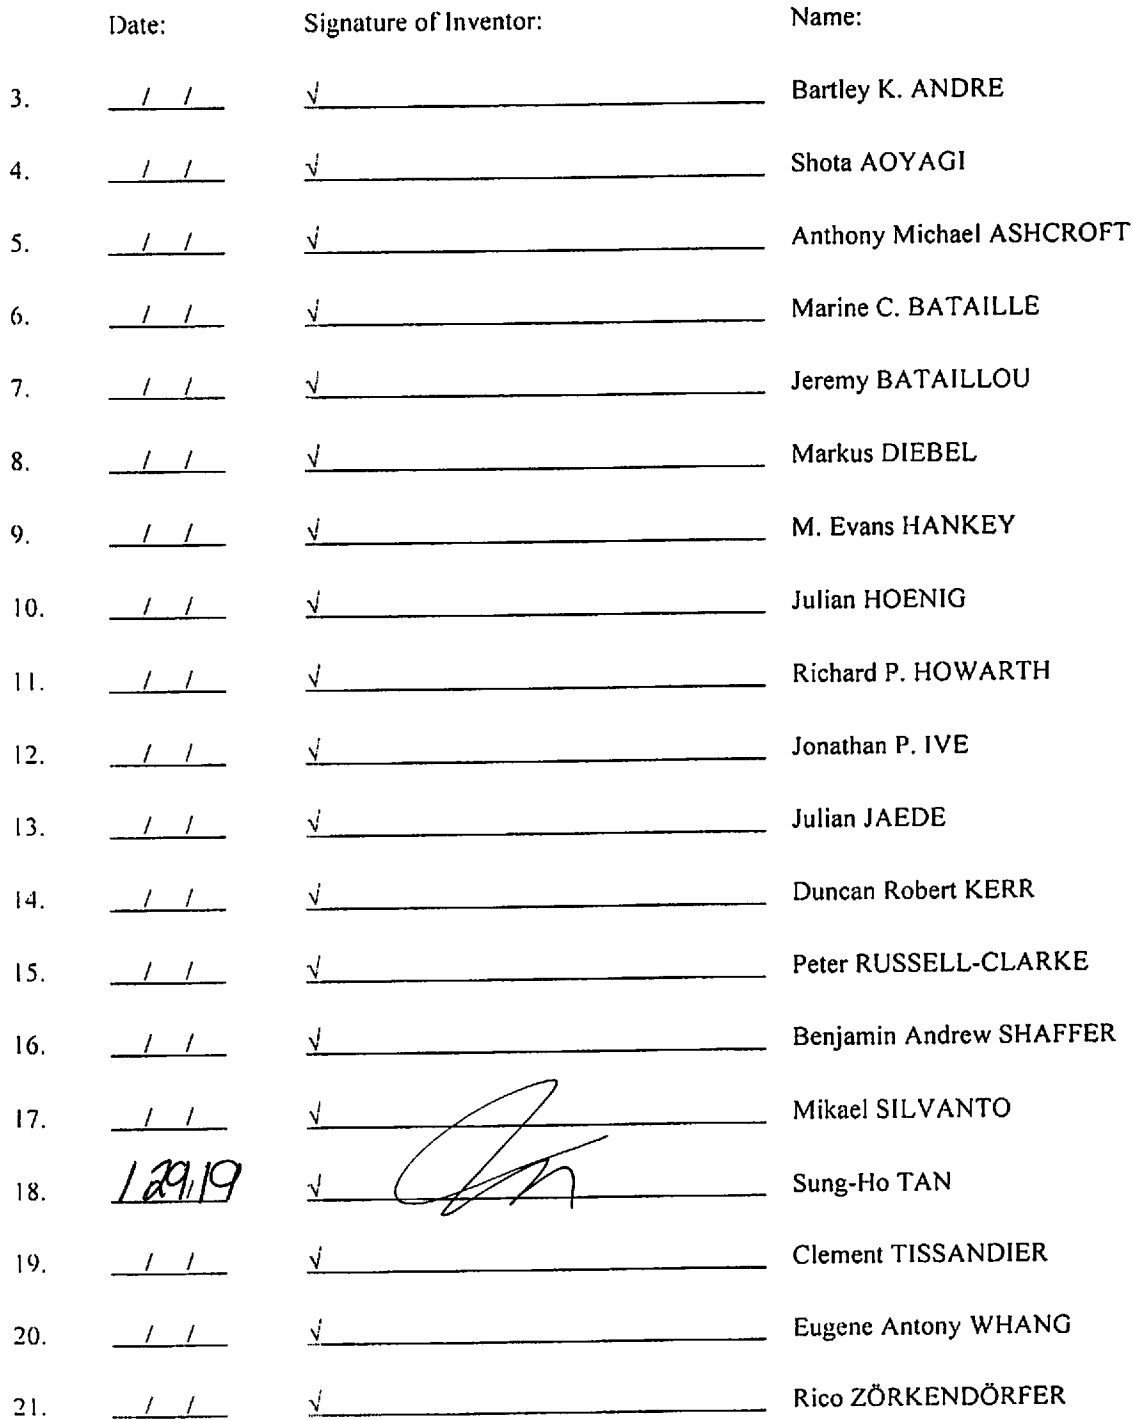 Date: Signature of Inventor: Name:
3. / / √ Bartley K. ANDRE
4. / / √ Shota AOYAGI
5. / / √ Anthony Michael ASHCROFT
6. / / √ Marine C. BATAILLE
7. / / √ Jeremy BATAILLOU
8. / / √ Markus DIEBEL
9. / / √ M. Evans HANKEY
10. / / √ Julian HOENIG
11. / / √ Richard P. HOWARTH
12. / / √ Jonathan P. IVE
13. / / √ Julian JAEDE
14. / / √ Duncan Robert KERR
15. / / √ Peter RUSSELL-CLARKE
16. / / √ Benjamin Andrew SHAFFER
17. / / √ Mikael SILVANTO
18. 1/29/19 √ Sung-Ho TAN
19. / / √ Clement TISSANDIER
20. / / √ Eugene Antony WHANG
21. / / √ Rico ZÖRKENDÖRFER